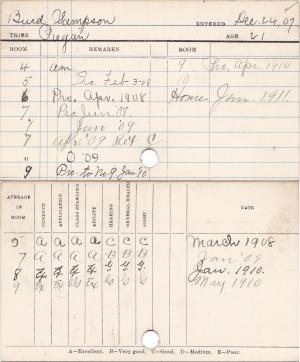 Burd Thompson ENTERED Dec. 24, 07
TRIBE Piegan AGE 21
ROOM REMARKS ROOM REMARKS
4 am 9 Pro. Apr. 1910
5 Pro. Feb. 3-08 10
6 Pro. Apr. 1908 Home Jan. 1911.
7 Pro. Jun. '08.
7 Jan '09
7 Apr. '09 Ret C
" O '09
9 Pro. to No. 9 Jan. '10
AVERAGE IN ROOM CONDUCT APPLICATION CLASS STANDING ABILITY HEARING GENERAL HEALTH SIGHT DATE
5 A A A A C C C March 1908
7 A A A A C B B Jan '09
8 Ex. Ex. G. G. G. Jan. 1910.
9 Ex. Ex. G. G. G. May 1910
A—Excellent. B—Very good. C—Good. D—Medium. E—Poor.